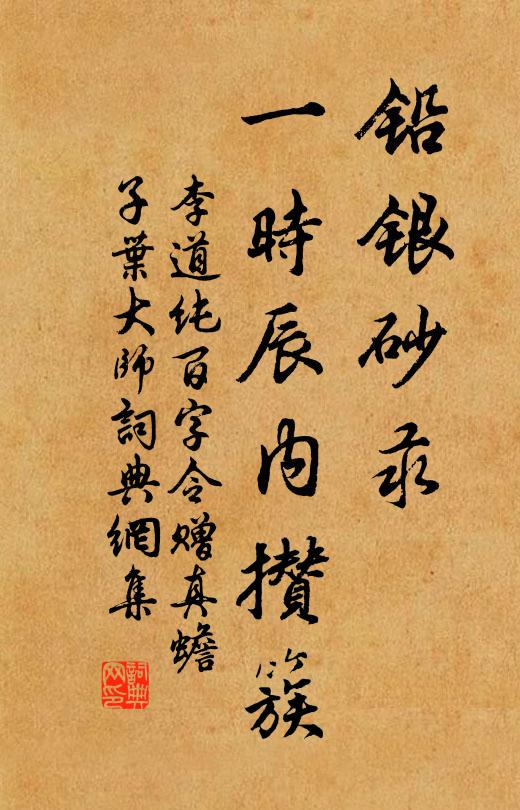 鉛銀砂汞
一時辰内攢簇
李道純百字令贈真蟾
子葉大師詞典網集
詞典网印